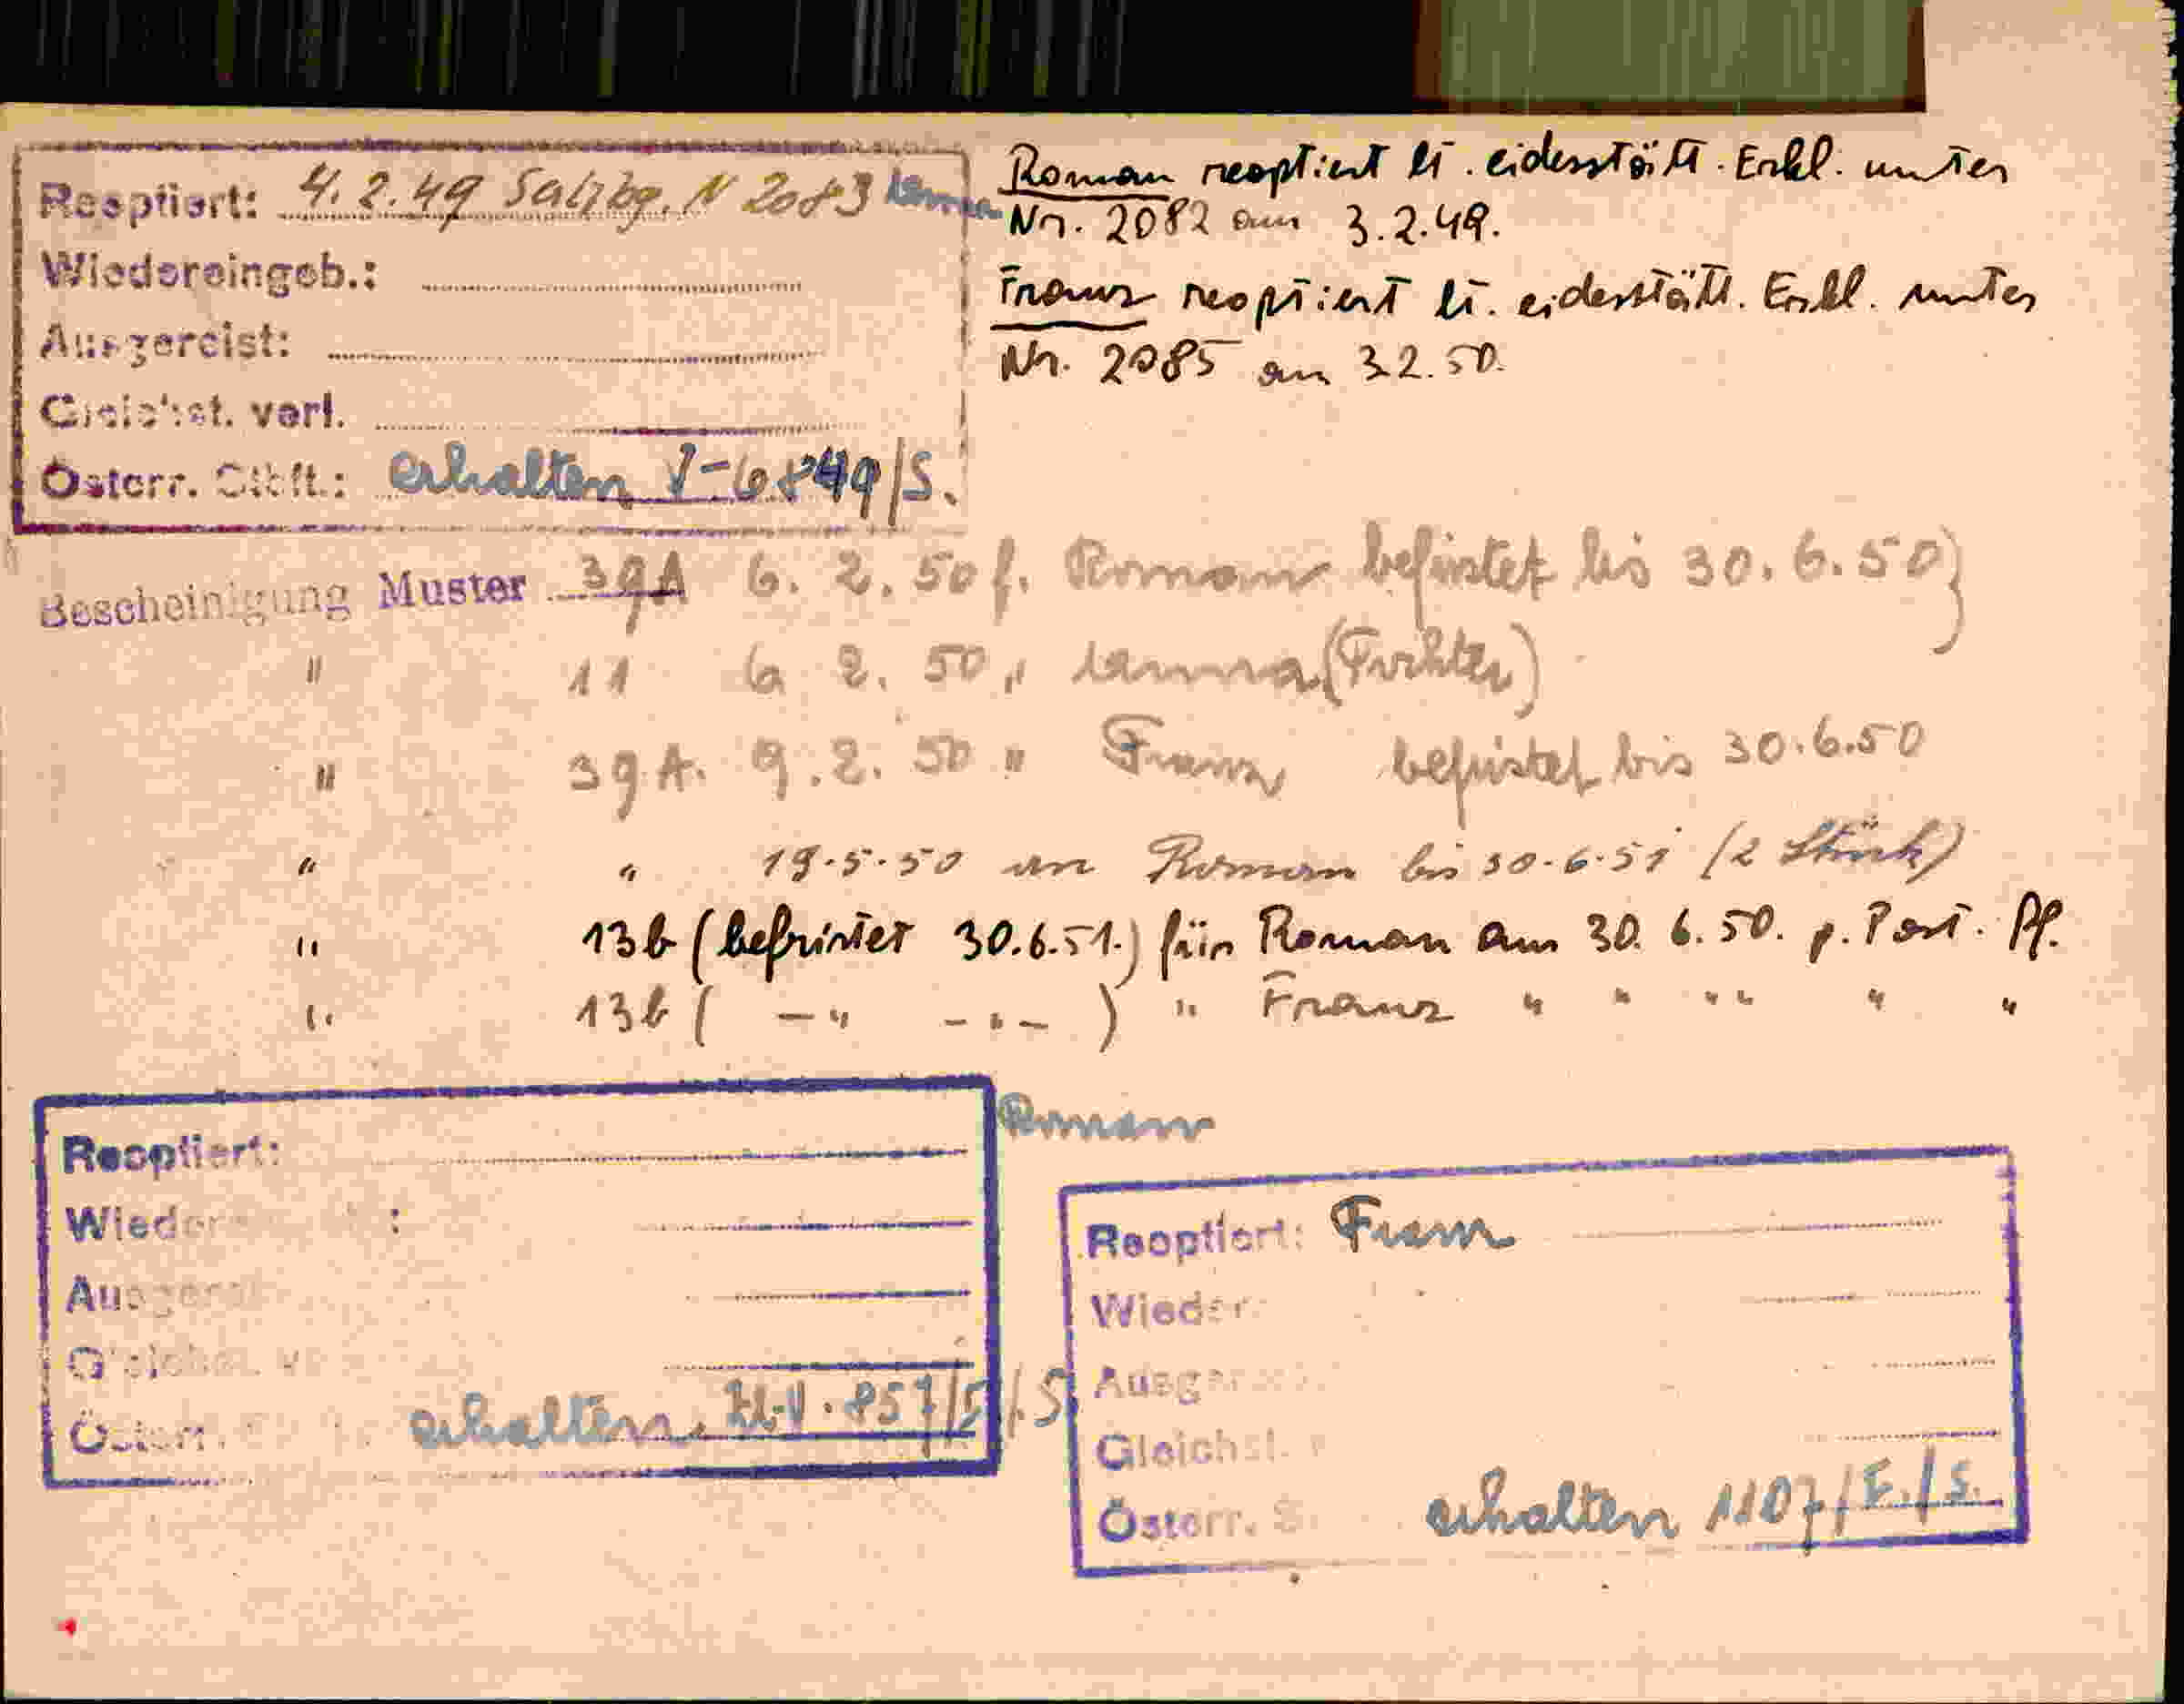 Reoptiert: 4. 2. 49 Salzbg. N 2083
Wiedereingeb.:
Ausgereist:
Gleichst. verl.
Österr. Stbft.: erhalten V-6849/S.
Roman reoptiert lt. eidesstätt. Erkl. unter
Nr. 2082 am 3.2.49.
Franz reoptiert lt. eidesstätt. Erkl. unter
Nr. 2085 am 3.2.50.
Bescheinigung Muster 39A 6. 2. 50 f. Roman befristet bis 30. 6. 50}
" 11 6 2. 50 "
" 39A. 9. 2. 50 " Franz befristet bis 30.6.50
" " 19.5.50 an Roman bis 30.6.51 (2 Stück)
" 13b (befristet 30.6.51.) für Roman am 30. 6. 50. p. Post. Pf.
" 13b ( -"- -"- ) " Franz " " " " " "
Roman
Reoptiert:
Wieder :
Ausgerei
Gleichst. v
Österr. erhalten
Reoptiert: Franz
Wieder
Ausger
Gleichst.
Österr. S erhalten 1107/E./S.